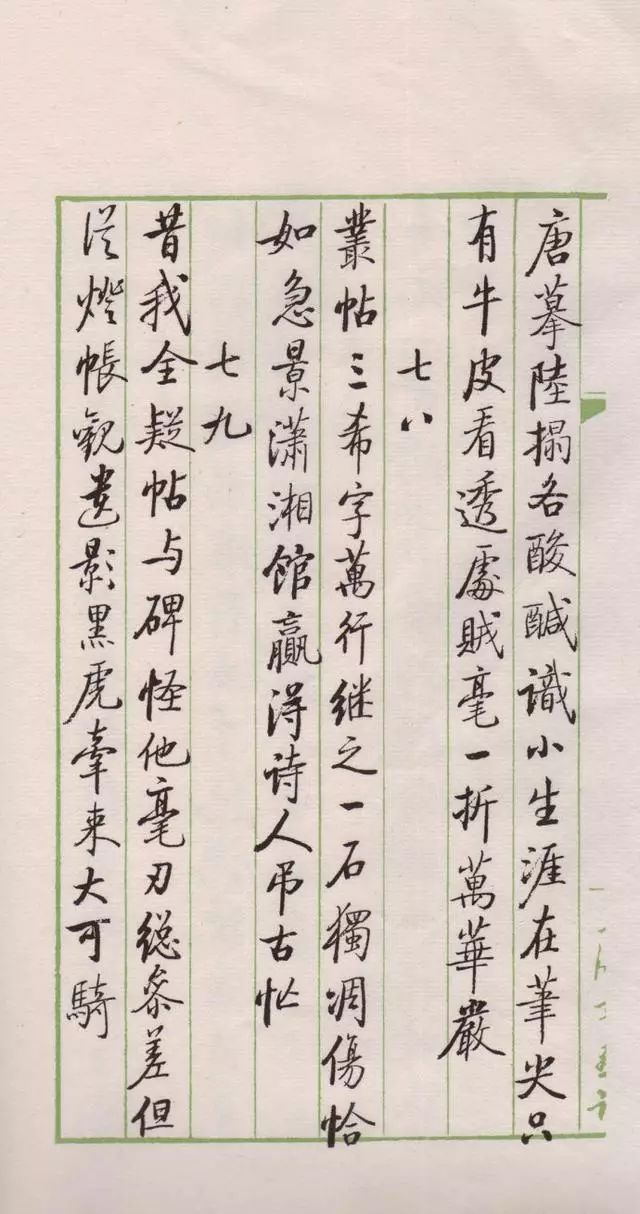 唐摹陸搨各酸醎識小生涯在筆尖只
有牛皮看透處賊毫一折萬華嚴
七八
叢帖三希字萬行继之一石獨凋傷恰
如急景瀟湘館贏得诗人吊古忙
七九
昔我全疑帖与碑怪他毫刃總参差但
從燈帳觀遺影黑虎牽来大可騎